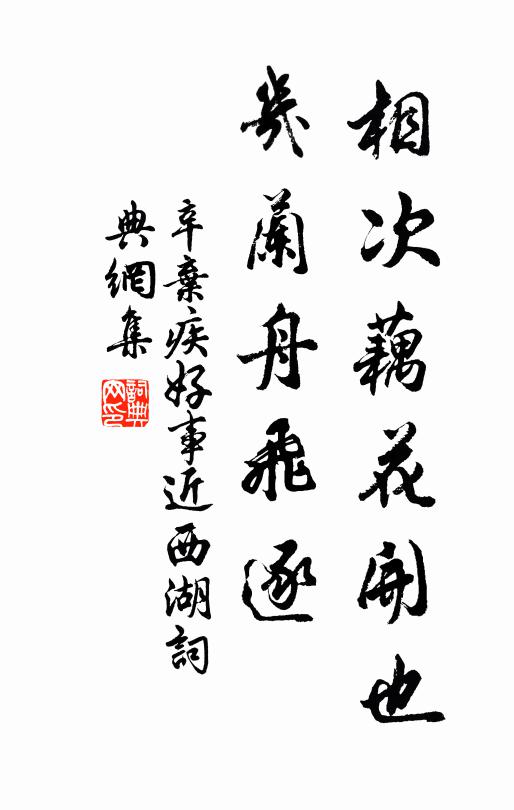 相次藕花開也
幾蘭舟飛逐
辛棄疾好事近西湖詞
典網集
詞典網印